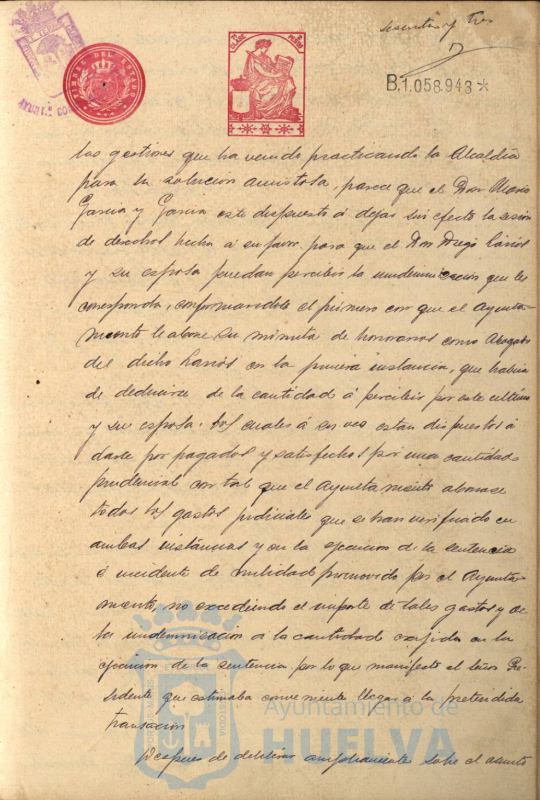 sesenta y tres
TIMBRE DEL ESTADO
B.1.058.943 *
las gestiones que ha venido practicando la Alcaldía
para la solución amistosa, parece que el Don Mario
Garcia y Garcia esta dispuesto á dejar sin efecto la sesion
de derechos hecha á su favor para que el Don Diego Larios
y su esposa puedan percibir la indemnización que les
corresponda, conformandose el primero con que el Ayunta-
miento le abone su minuta de honorarios como Abogado
del dicho Larios en la primera instancia, que habria
de deducirse de la cantidad á percibir por este ultimo
y su esposa; los cuales á su vez están dispuestos á
darse por pagados y satisfechos por una cantidad
prudencial con tal que el Ayuntamiento abonase
todos los gastos judiciales que se han verificado en
ambas instancias y en la ejecucion de la sentencia
é incidente de nulidad promovido por el Ayunta-
miento, no excediendo el importe de tales gastos y de
la indemnización á la cantidad exigida en la
ejecucion de la sentencia por lo que manifestó el Señor Pre-
sidente que estimaba conveniente llegar á la pretendida
transacion
Despues de deliberar ampliamente sobre el asunto
Ayuntamiento de
HUELVA